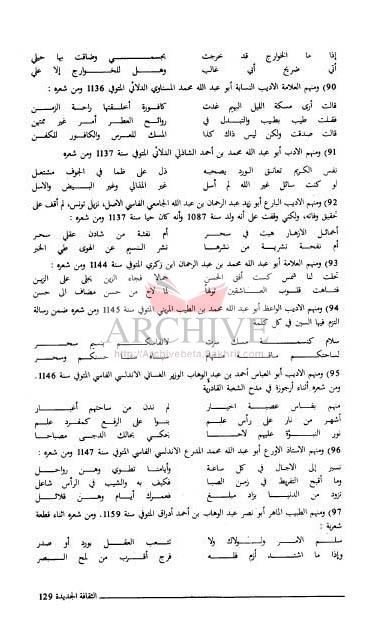 إذا ما الخوارج قد خرجت بجسمي وضاقت بها حيلي
أتي ضريح أبي غالب وهل للخوارج إلا علي
90) ومنهم العلامة الاديب النسابة أبو عبد الله محمد المسناوي الدلائي المتوفي 1136 ومن شعره :
قالت أرى مسكة الليل البهيم غدت كافورة أخلفتها راحة الزمن
فقلت طيب بطيب والتبدل في روائح العطر أمر غير ممتهن
قالت صدقت ولكن ليس ذاك كذا المسك للعرس والكافور للكفن
91) ومنهم الاديب أبو عبد الله محمد بن أحمد الشاذلي الدلائي المتوفي سنة 1137 ومن شعره
نفس الكريم تعانق الورد يصحبه ذل على ظما في الجوف مشتعل
أو كنت سائل غير الله لم أسل غير المذالي وغير البيض والاسل
92) ومنهم الاديب البارع أبو زيد عبد الرحمان بن عبد الله الجامعي الفاسي الاصل، نزيل تونس، لم أقف على
تحقيق وفاته، ولكني وقفت على أنه ولد سنة 1087 وأنه كان حيا سنة 1137 ومن شعره :
أخمائل الازهار هيت في سحر أم نفثة من شادن عقلي سحر
أم نفحة نشرية من نشرها نشر النسيم عن الهوى طي الخبر
93) ومنهم العلامة أبو عبد الله محمد بن عبد الرحمان ابن زكري المتوفي سنة 1144 ومن شعره :
تجلت لنا شمس كست أفق الحسن جمالا فجاء الزين يجلى على الزين
فتاهت قلوب العاشقين لاح من حسن مضاف الى حسن
94) ومنهم الاديب الواعظ أبو عبد الله محمد بن الطيب المريني المتوفي سنة 1145 ومن شعره ضمن رسالة
التزم فيها السين في كل كلمة
سلام كنسمة سرت لانفاسكم بنسيم سحر
لساحتكم حسنكم وسحر
95) ومنهم الاديب أبو العباس أحمد بن عبد الوهاب الوزير الغاني الاندلسي الفاسي المتوفي سنة 1146.
ومن شعره أثناء أرجوزة في مدح الشعبة القادرية
منهم بفاس عصبة اخيار لم ندن من ساحتهم أغيار
أشهر من نار على رأس علم بنوا على الرفع كمفرد علم
نور النبوة عليهم لاحا يحكي بحالك الدجى مصباحا
96) ومنهم الاستاذ الاورع أبو عبد الله محمد المدرع الاندلسي الفاسي المتوفي سنة 1147 ومن شعره :
نسير إلى الاجال في كل ساعة وأيامنا تطوى وهن رواحل
وما أقبح التفريط في زمن الصبا فكيف به والشيب في الرأس شاعل
تزود من الدنيا بزاد مبلغ فعمرك أيام وهن قلائل
97) ومنهم الطبيب الماهر أبو نصر عبد الوهاب بن أحمد أدراق المتوفي سنة 1159. ومن شعره أثناء قطعة
شعرية :
سلم الامر ولولاك ولا تتعب العقل بورد أو صدر
وإذا ما اشتد أزم فله فرج أقرب من لمح البصر
الثقافة الجديدة 129
ARCHIVE
http://Archivebeta.Sakhrit.com